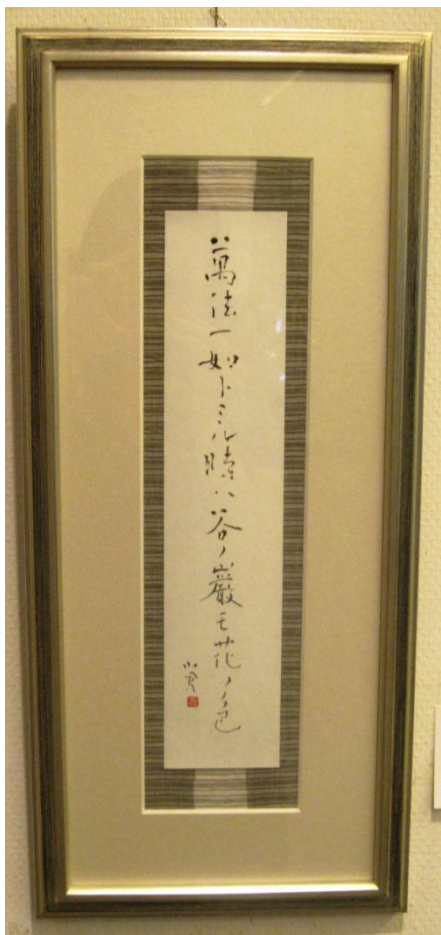 萬法一如トミル時ハ谷ノ巌モ花ノ色